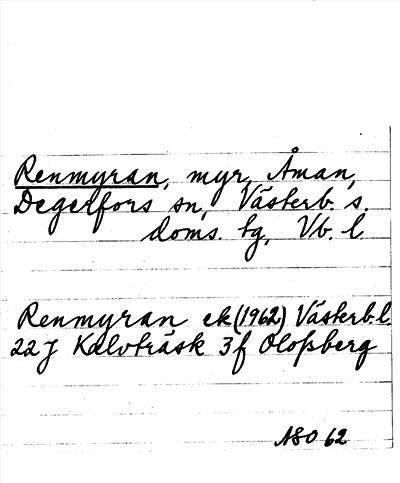 Renmyran, myr, Åman,
Degerfors sn, Västerb. s.
doms. tg, Vb. l.
Renmyran ek (1962) Västerb. l.
22 J Kalvträsk 3f Olofsberg
ASO 62